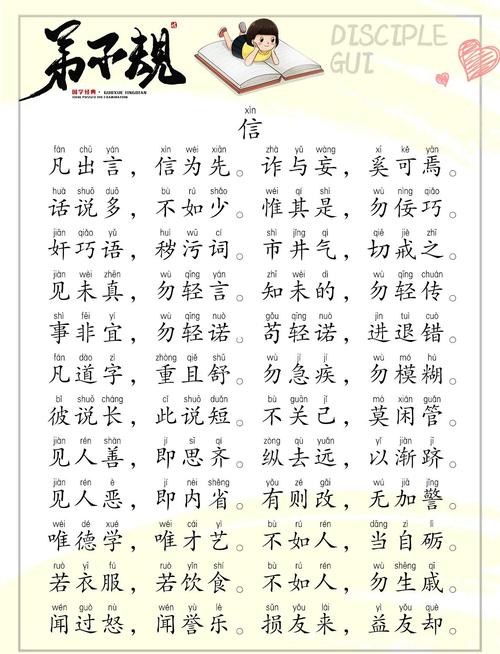 弟子规
国学经典 · GUOXUE JINGDIAN
DISCIPLE
GUI
xìn
信
fán chū yán xìn wéi xiān zhà yǔ wàng xī kě yān
凡出言，信为先。诈与妄，奚可焉。
huà shuō duō bù rú shǎo wéi qí shì wù nìng qiǎo
话说多，不如少。惟其是，勿佞巧
jiān qiǎo yǔ huì wū cí shì jǐng qì qiè jiè zhī
奸巧语，秽污词。市井气，切戒之。
jiàn wèi zhēn wù qīng yán zhī wèi dì wù qīng chuán
见未真，勿轻言。知未的，勿轻传。
shì fēi yí wù qīng nuò gǒu qīng nuò jìn tuì cuò
事非宜，勿轻诺。苟轻诺，进退错。
fán dào zì zhòng qiě shū wù jí jí wù mó hú
凡道字，重且舒。勿急疾，勿模糊。
bǐ shuō cháng cǐ shuō duǎn bù guān jǐ mò xián guǎn
彼说长，此说短。不关己，莫闲管。
jiàn rén shàn jí sī qí zòng qù yuǎn yǐ jiàn jī
见人善，即思齐。纵去远，以渐跻。
jiàn rén è jí nèi xǐng yǒu zé gǎi wú jiā jǐng
见人恶，即内省。有则改，无加警。
wéi dé xué wéi cái yì bù rú rén dāng zì lì
唯德学，唯才艺。不如人，当自砺。
ruò yī fú ruò yǐn shí bù rú rén wù shēng qī
若衣服，若饮食。不如人，勿生戚。
wén guò nù wén yù lè sǔn yǒu lái yì yǒu què
闻过怒，闻誉乐。损友来，益友却。